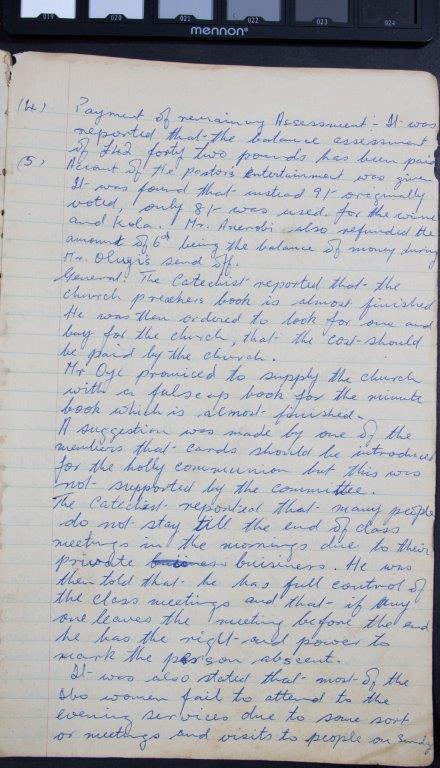 019 020 021 022 023 024
mennon®
(4) Payment of remaining Assessment - It was
reported that the balance assessment
of £42 forty two pounds has been paid
(5) Account of the pastor's Entertainment was given
It was found that instead 9/- originally
voted, only 8/- was used for the wine
and Kola. Mr. also refunded the
amount of 6d being the balance of money during
Mr. send off.
General: The Catechist reported that the
church preachers book is almost finished
He was then ordered to look for one and
buy for the church, that the cost should
be paid by the church.
Mr Oye promiced to supply the church
with a fulscap book for the minute
book which is almost finished.
A suggestion was made by one of the
members that cards should be introduced
for the holly communion but this was
not supported by the committee.
The Catechist reported that many people
do not stay till the end of class
meetings in the mornings due to their
private buisiness. He was
then told that he has full control of
the class meetings and that if any
one leaves the meeting before the end
he has the right and power to
mark the person abscent.
It was also stated that most of the
Ibo women fail to attend to the
evening services due to some sort
or meetings and visits to people on Sunday